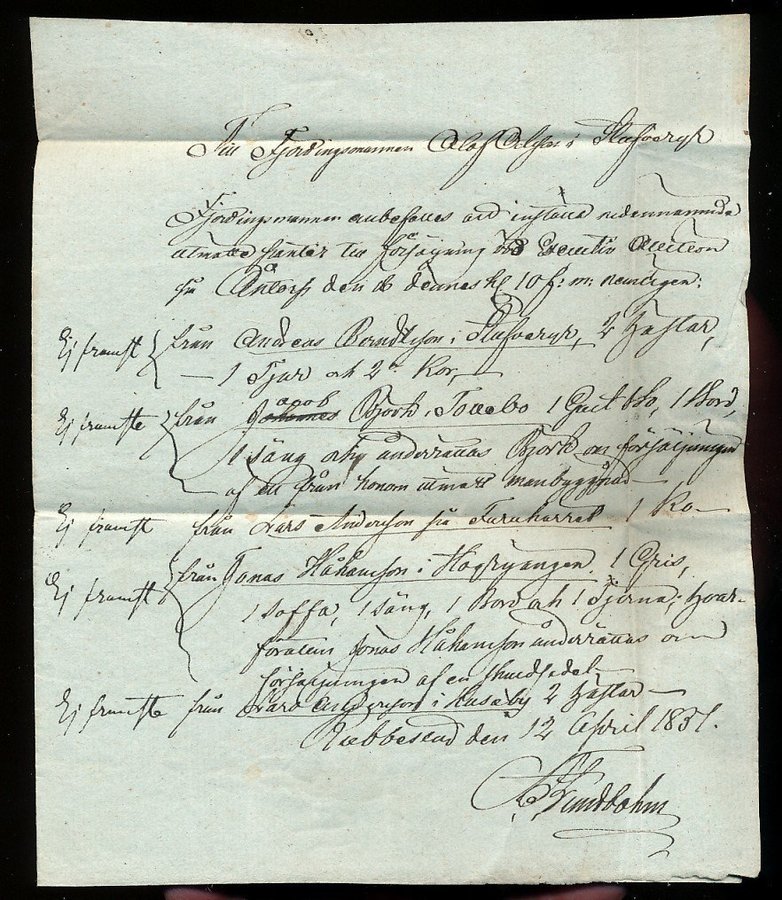 Till Fjerdingsmannen Olof Olsson i Slafveryr
Fjerdingsmannen anbefalles att inställa nedannämnde
utmätte panter till försäljning vid Executiv Auction
på den 16 dennes kl 10 f: m: nemligen:
Ej framst från Andreas Berndtson i Slafveryr, 2 Hästar,
1 Tjur och 2 Kor,
Ej framste från Johannes Jacob Björk i Tossebo 1 1 Bord,
1 säng och underrättas Björk om försäljningen
af ett från honom utmätt manbyggnad
Ej framst från Lars Anderson på 1 Ko
Ej framst från Jonas Håkanson i 1 Gris,
1 Soffa, 1 säng, 1 Bord och 1 Tjerna; hvar-
förutom Jonas Håkanson underrättas om
försäljningen af en skuldsedel
Ej framste från Lars Anderson i Huseby 2 Hästar
Rabbestad den 12 April 1837.